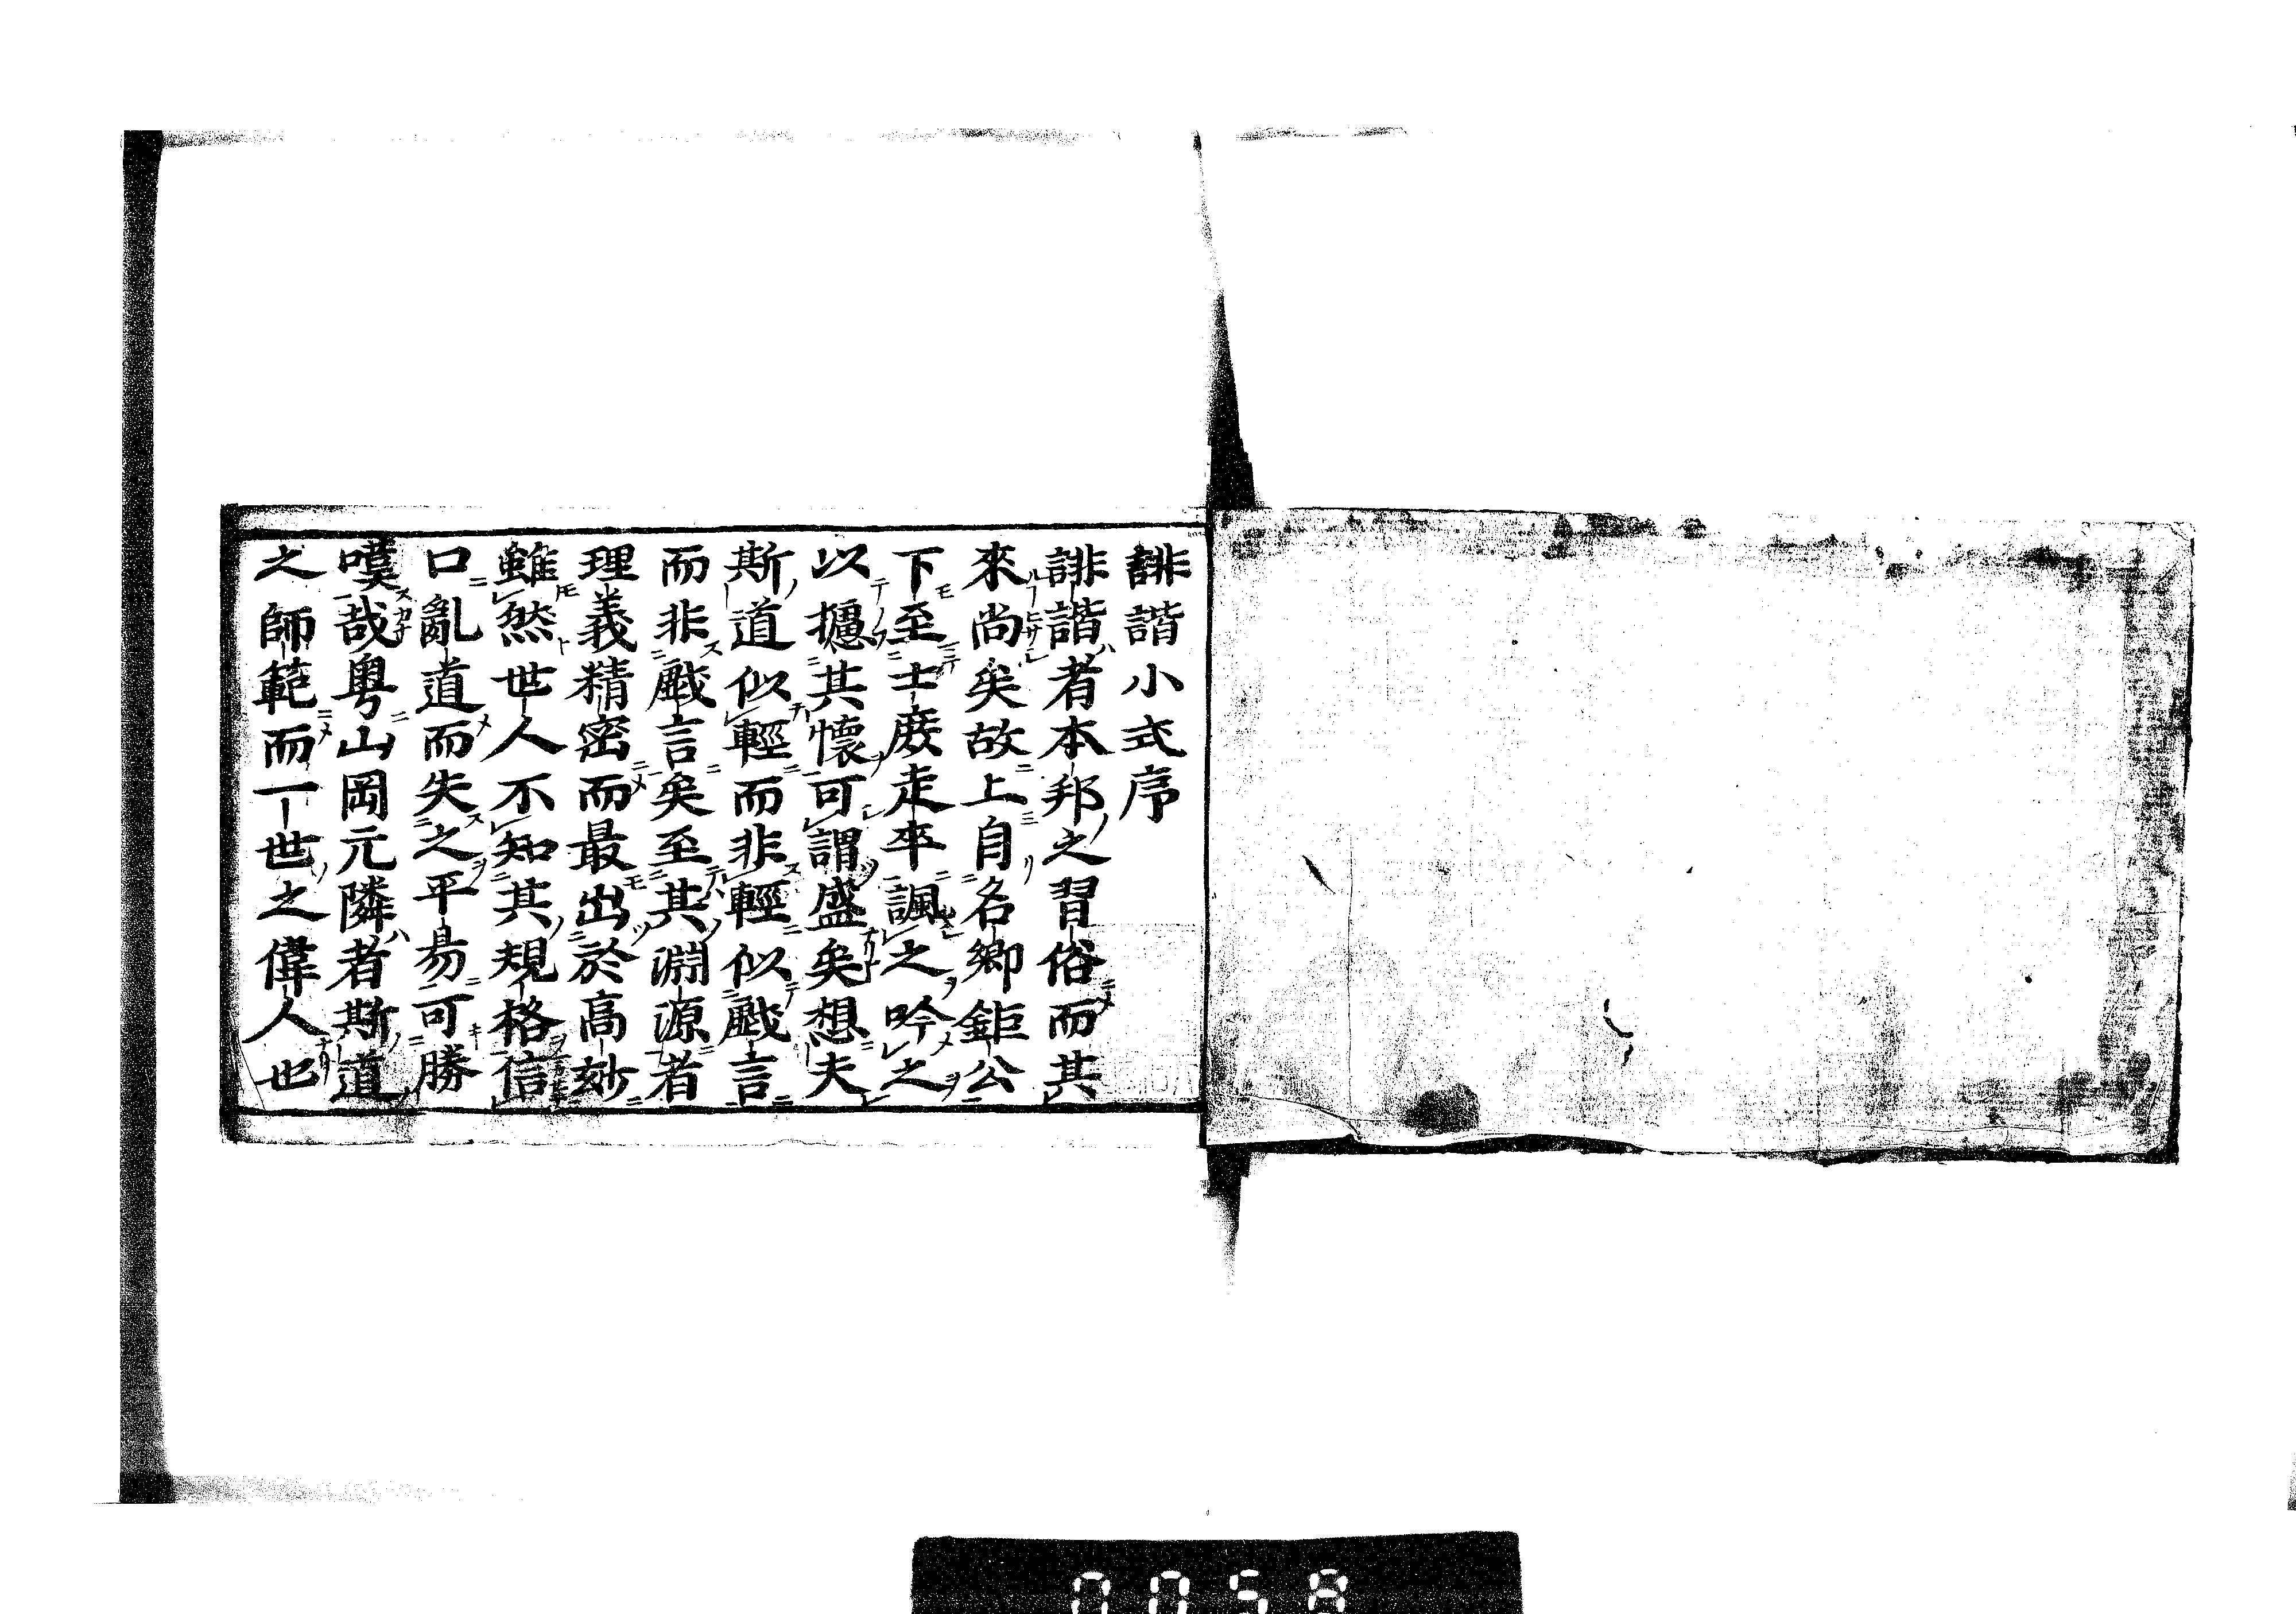 誹諧小式序
誹諧者本邦之習俗而其
來尚矣故上自名卿鉅公
下至士庻走卒諷之吟之
以攄其懷可謂盛矣想夫
斯道似輕而非輕似戲言
而非戲言矣至其淵源者
理義精密而最出於高妙
雖然世人不知其規格信
口亂道而失之平易可勝
嘆哉粤山岡元隣者斯道
之師範而一世之偉人也
0058